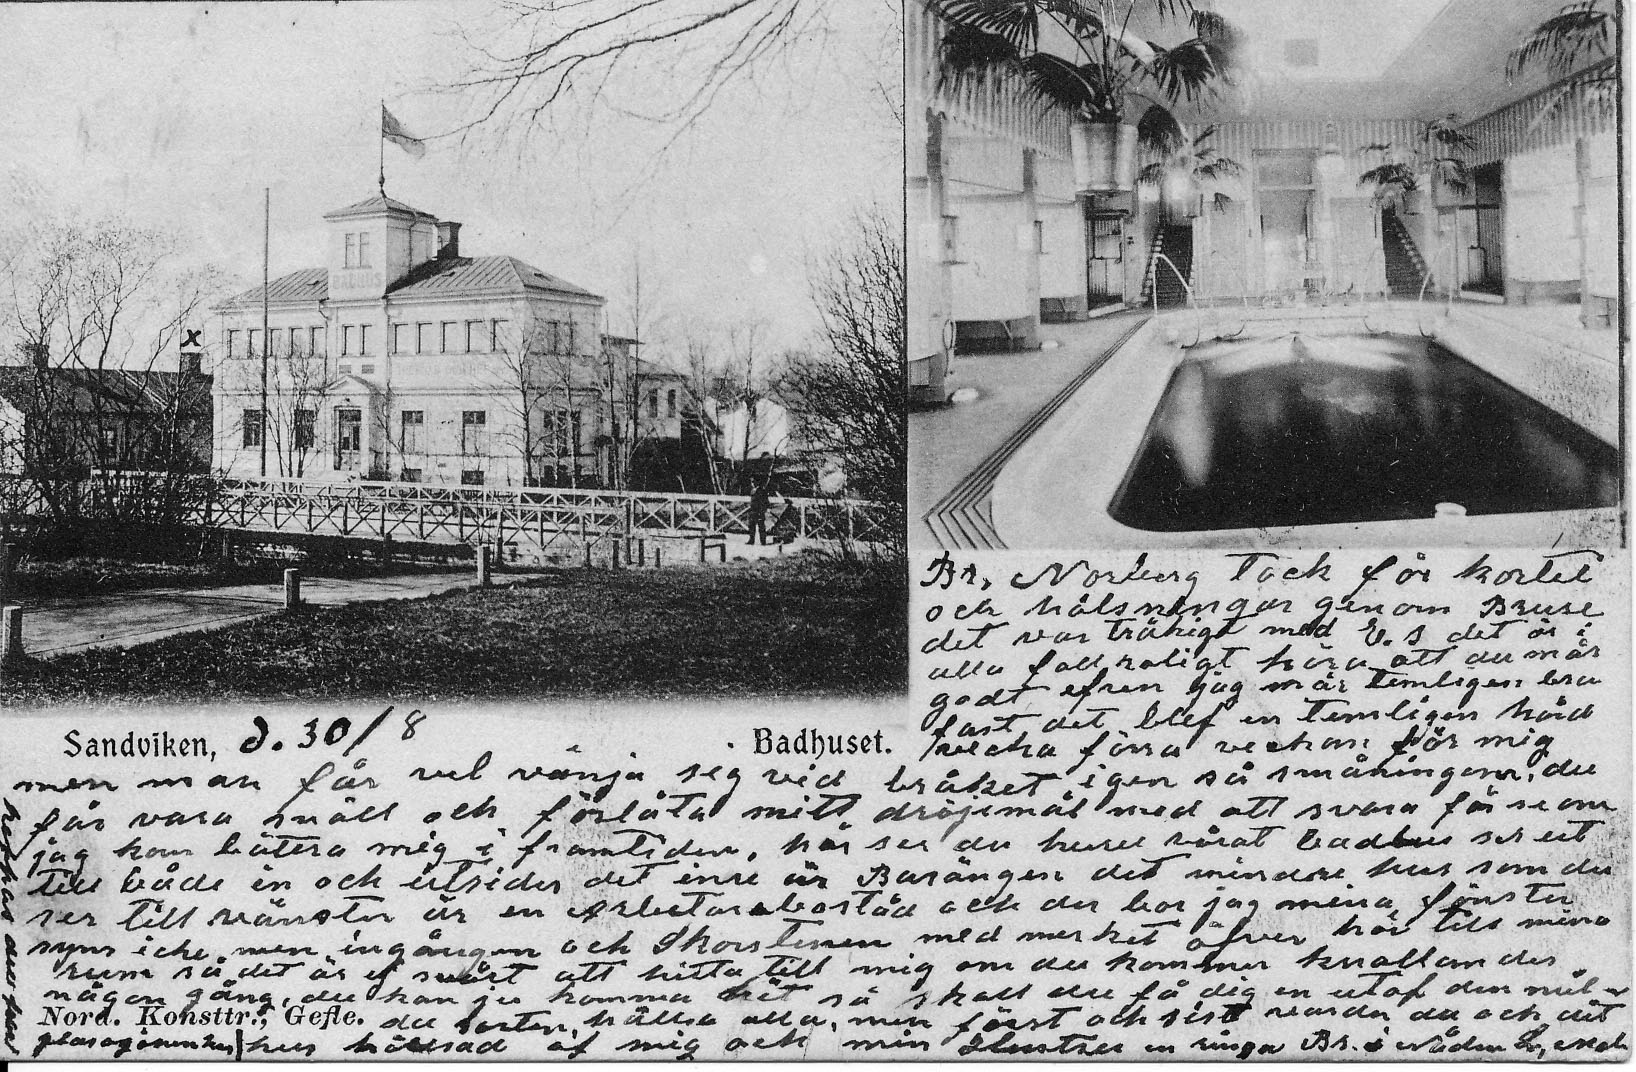 Br, Norberg Tack för kortet
och hälsningar genom Bruse
det var tråkigt med E. S det är i
alla fall roligt höra att du mår
godt efven jag mår temligen bra
fast det blef en temligen hård
vecka förra veckan för mig
Sandviken, d. 30/8
Badhuset.
men man får vel vänja sig vid bråket igen så småningom, du
får vara snäll och förlåta mitt dröjsmål med att svara får se om
jag kan bättra mig i framtiden, här ser du huru vårat badhus ser ut
till både in och utsidor det inre är Basängen det mindre hus som du
ser till vänster är en Arbetarebostad och der bor jag mina fönster
syns icke men ingången och Skorstenen med merket öfver hör till mina
rum så det är ej svårt att hitta till mig om du kommer knallandes
någon gång, du kan ju komma hit så skall du få dig en utaf den
Nord. Konsttr., Gefle.
du sorten, hälsa alla, men först och sist varda du och dit
hus hälsad af mig och min en ringa Br. i